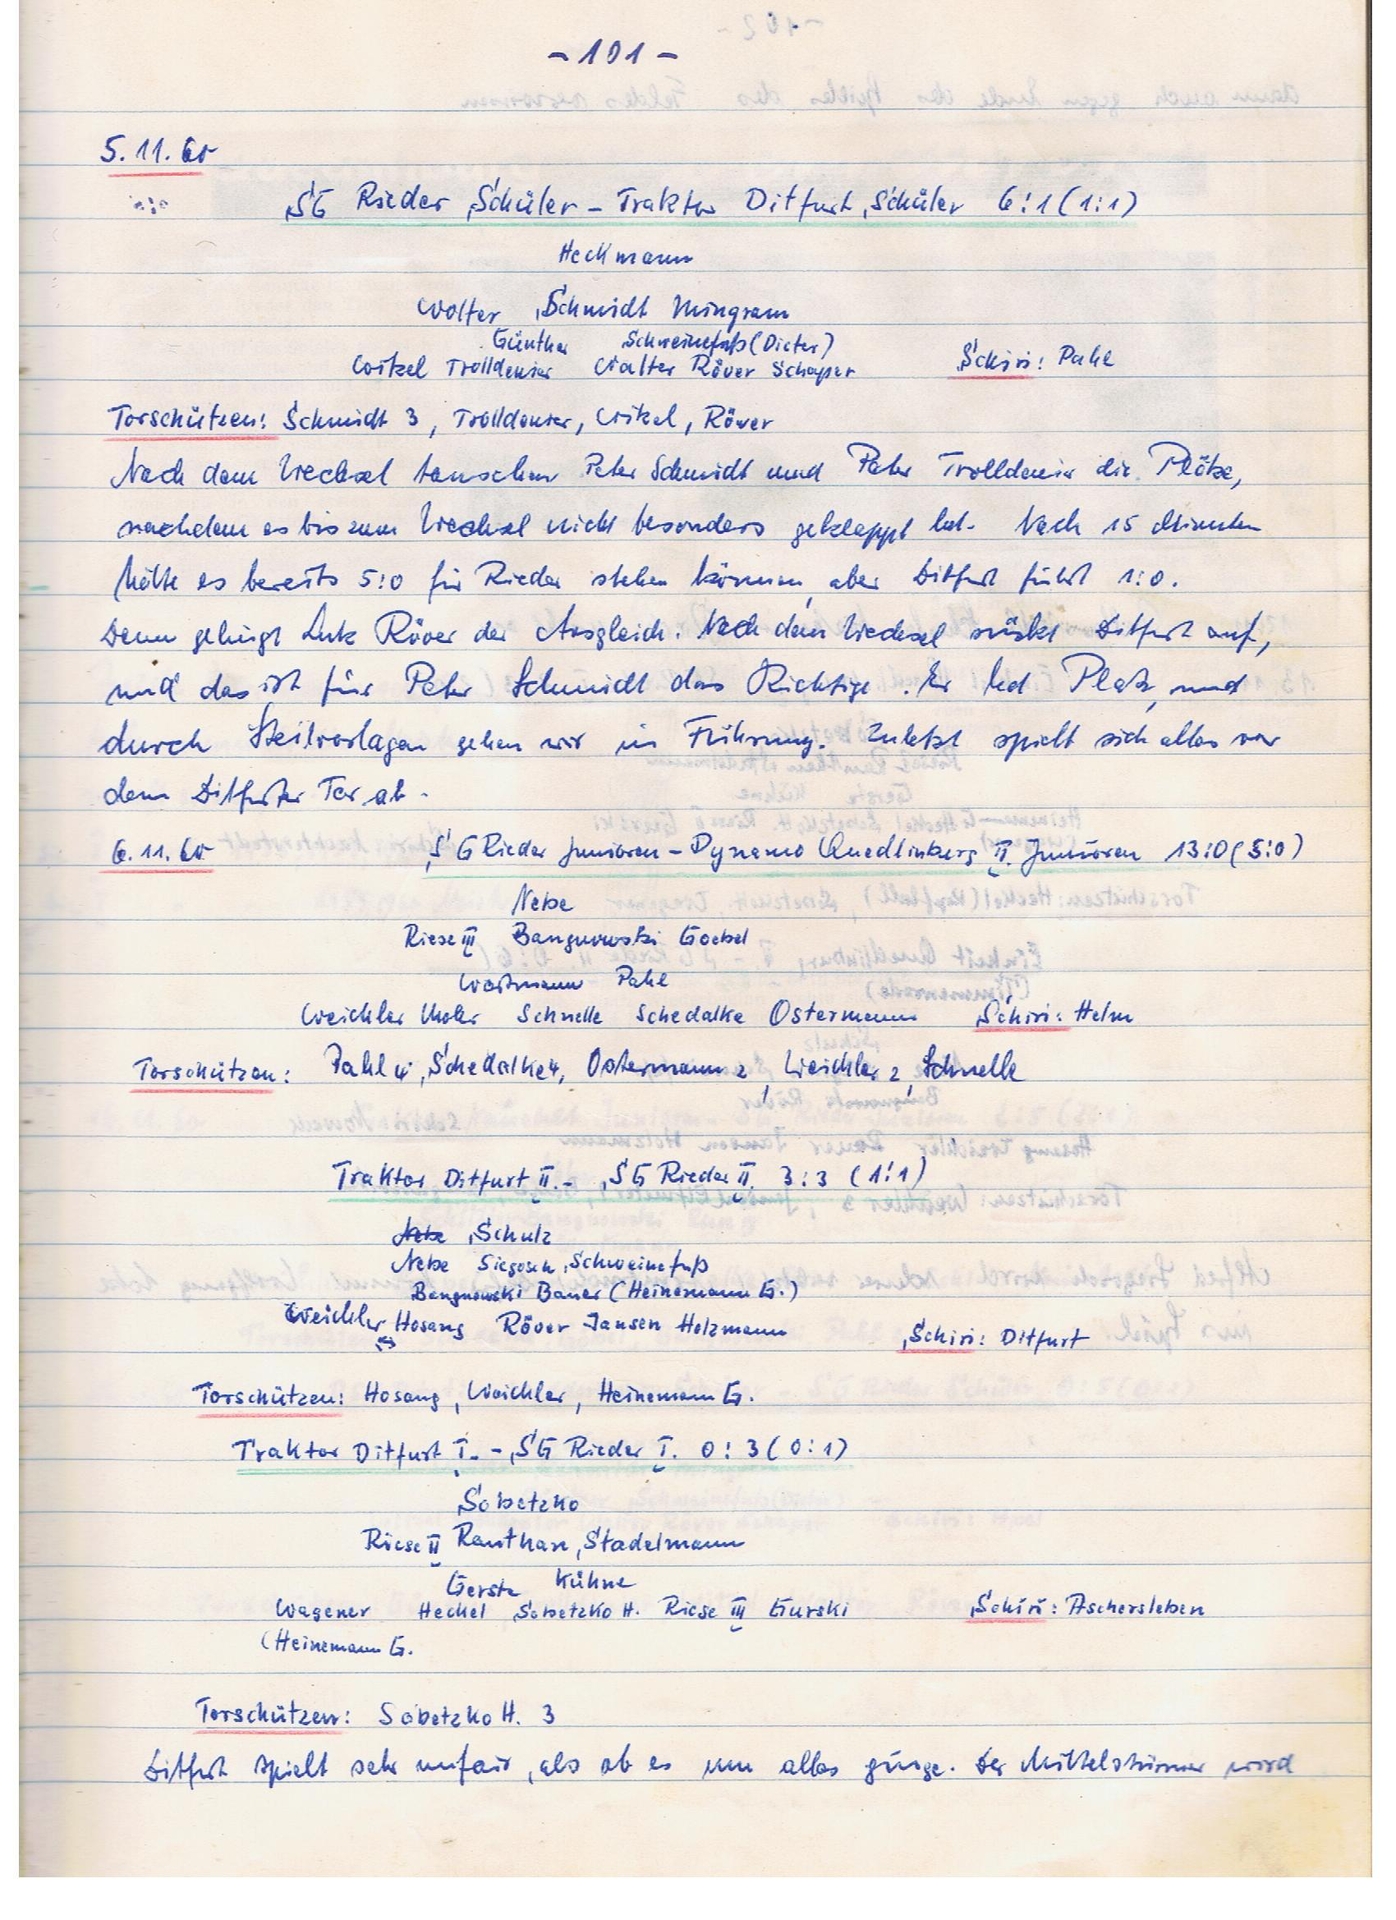 -101-
5.11.60
SG Rieder Schüler - Traktor Ditfurt Schüler 6:1 (1:1)
Heckmann
Wolter Schmidt Mingram
Günther Schweinefuß (Dieter)
Witzel Trolldenier Walter Röver Schaper Schiri: Pahl
Torschützen: Schmidt 3, Trolldenier, Witzel, Röver
Nach dem Wechsel tauschen Peter Schmidt und Peter Trolldenier die Plätze,
nachdem es bis zum Wechsel nicht besonders geklappt hat. Nach 15 Minuten
hätte es bereits 5:0 für Rieder stehen können, aber Ditfurt führt 1:0.
Dann gelingt Lutz Röver der Ausgleich. Nach dem Wechsel rückt Ditfurt auf,
und das ist für Peter Schmidt das Richtige. Er hat Platz, und
durch Steilvorlagen gehen wir in Führung. Zuletzt spielt sich alles vor
dem Ditfurter Tor ab.
6.11.60 SG Rieder Junioren - Dynamo Quedlinburg II. Junioren 13:0 (5:0)
Nebe
Riese III Bangnowski Goebel
Wortmann Pahl
Weichler Schnelle Schedalke Ostermann Schiri: Helm
Torschützen: Pahl 4, Schedalke 4, Ostermann 2, Weichler 2, Schnelle
Traktor Ditfurt II. - SG Rieder II. 3:3 (1:1)
Nebe Schulz
Nebe Siegosch Schweinefuß
Bangnowski Bauer (Heinemann G.)
Weichler Hosang Röver Jansen Holzmann Schiri: Ditfurt
Torschützen: Hosang, Weichler, Heinemann G.
Traktor Ditfurt I. - SG Rieder I. 0:3 (0:1)
Sobetzko
Riese II Rauthan Stadelmann
Gerste Kühne
Wagener Heckel Sobetzko H. Riese III Gurski Schiri: Aschersleben
(Heinemann G.
Torschützen: Sobetzko H. 3
Ditfurt spielt sehr unfair, als ob es um alles ginge. Der Mittelstürmer wird